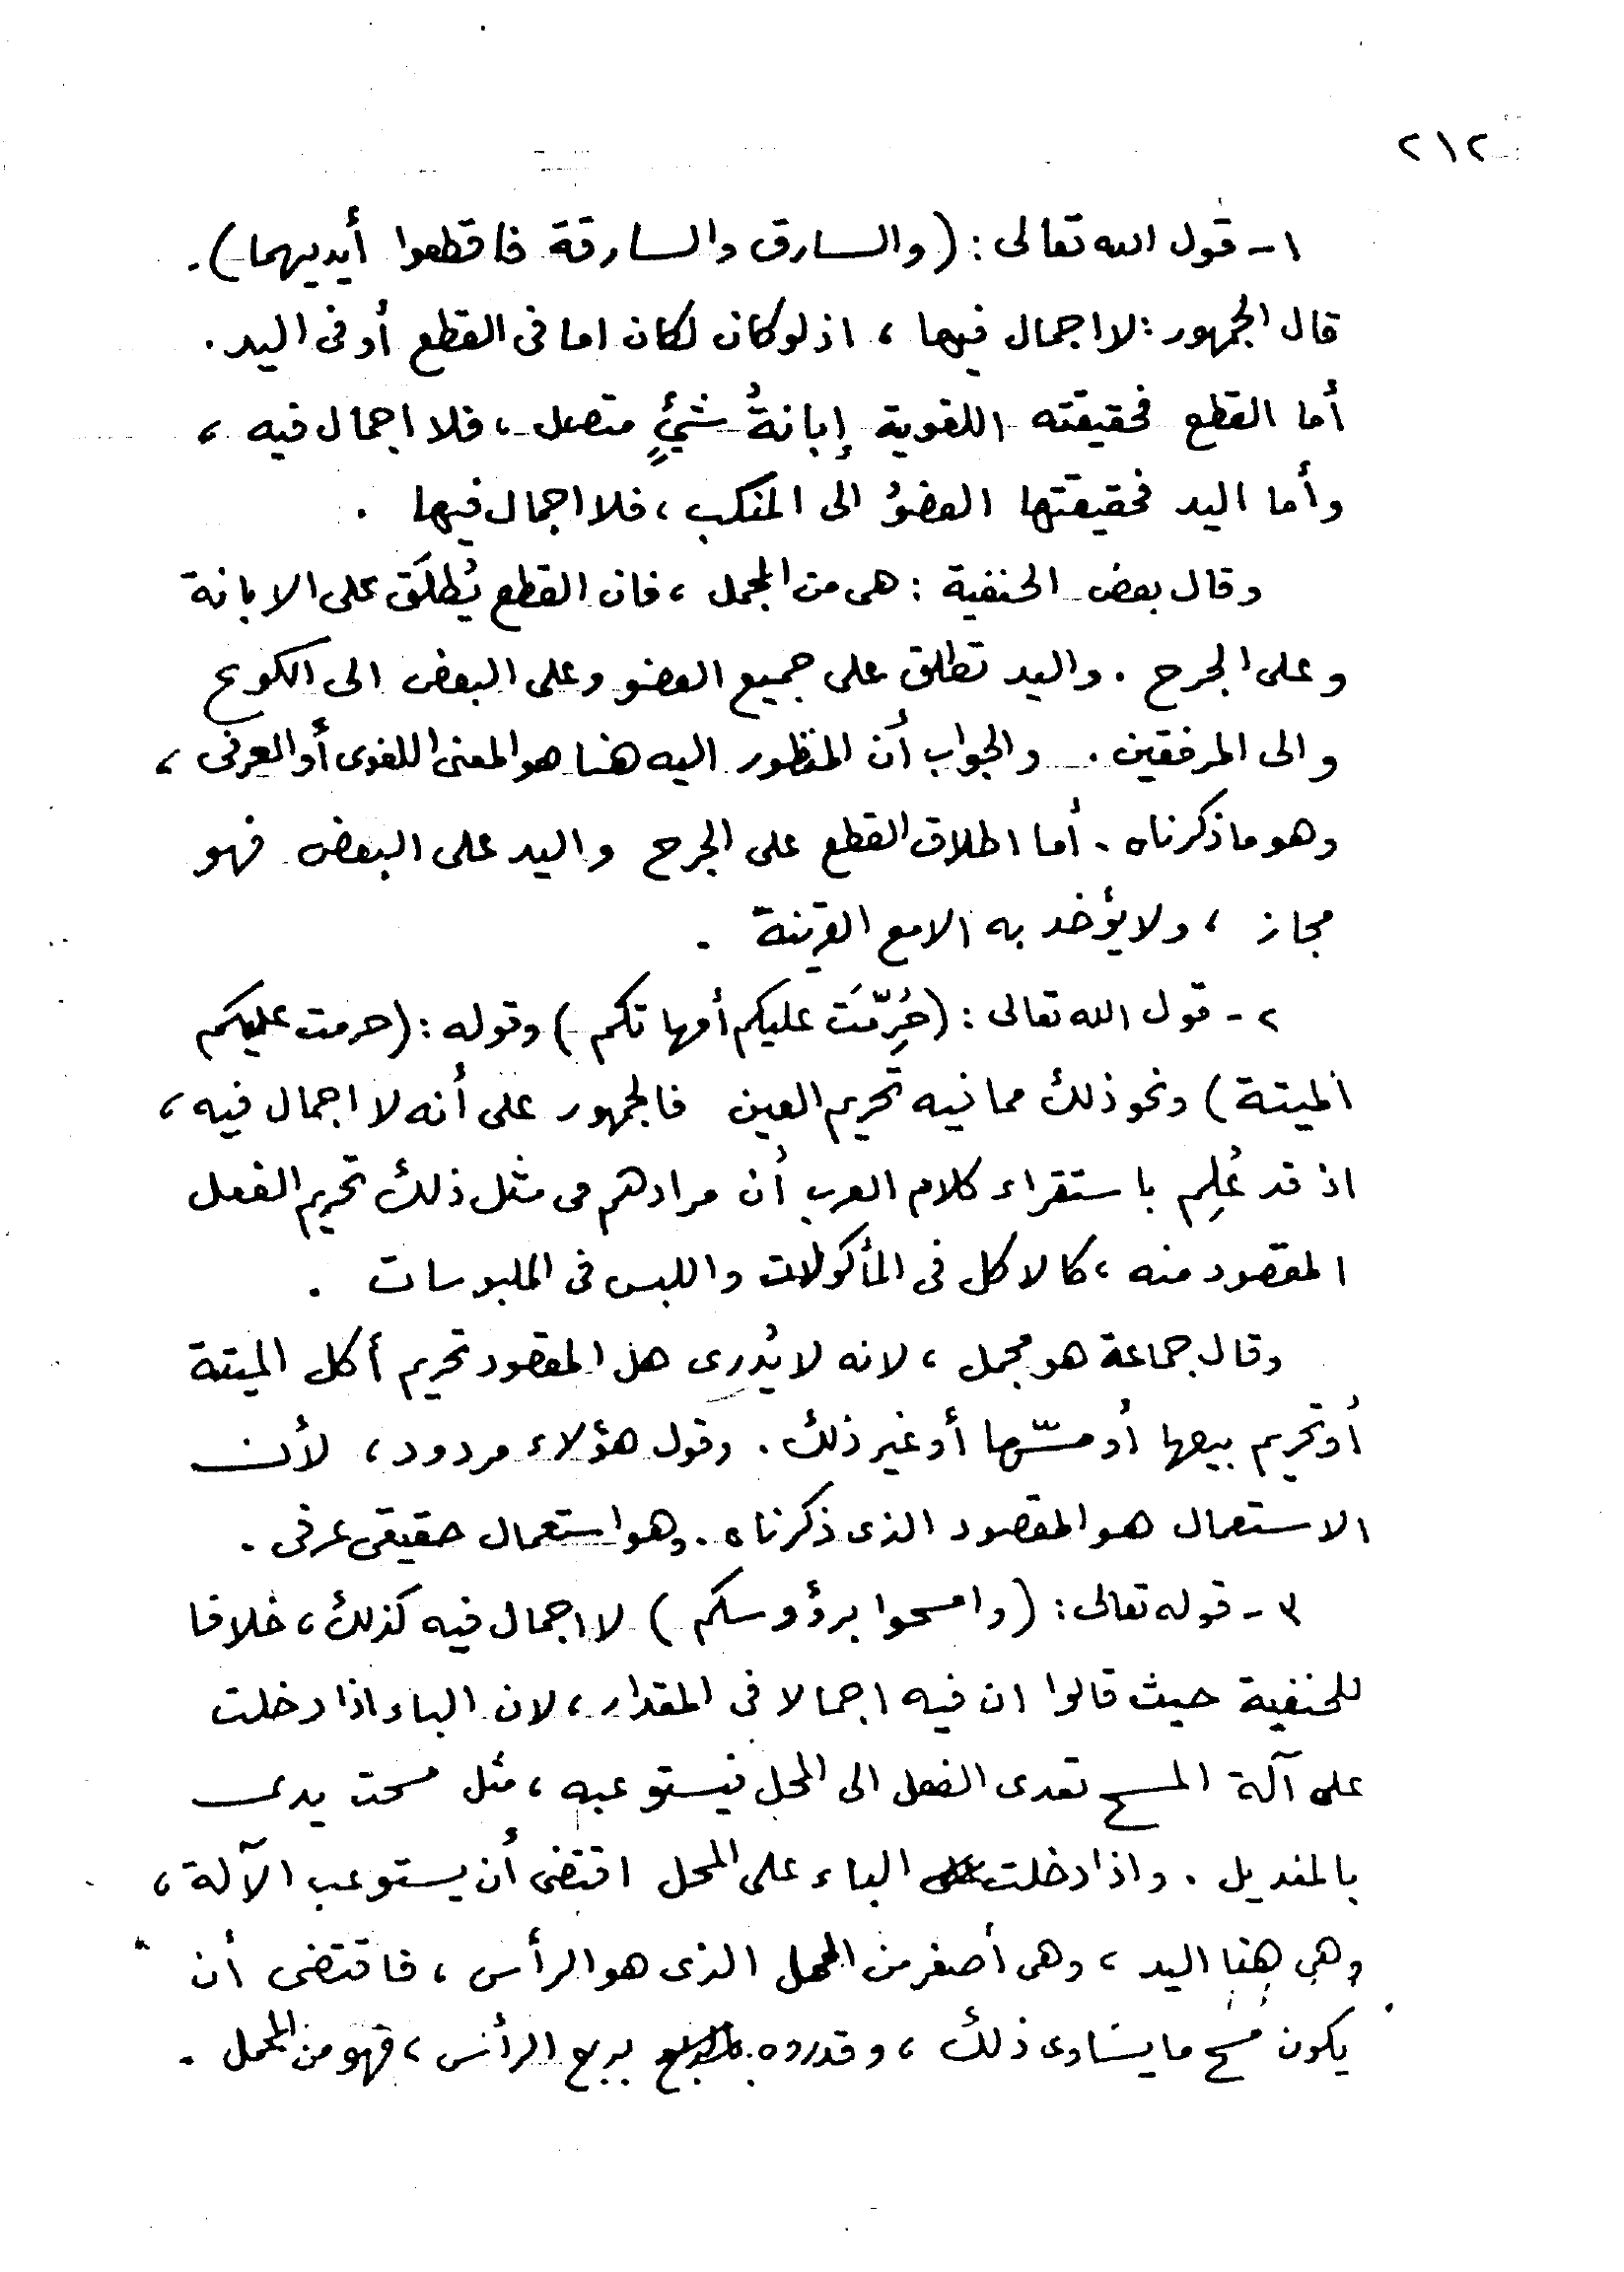 ٢١٢
١- قول الله تعالى : (والسارق والسارقة فاقطعوا أيديهما) .
قال الجمهور : لا اجمال فيها ، اذ لو كان لكان اما فى القطع أو فى اليد .
أما القطع فحقيقته اللغوية إبانةُ شيءٍ متصل ، فلا اجمال فيه ،
وأما اليد فحقيقتها العضوُ الى المنكب ، فلا اجمال فيها .
وقال بعض الحنفية : هى من المجمل ، فان القطع يُطلَق على الابانة
وعلى الجرح . واليد تطلق على جميع العضو وعلى البعض الى الكوع
والى المرفقين . والجواب أن المنظور اليه هنا هو المعنى اللغوى أو العرفى ،
وهو ما ذكرناه . أما اطلاق القطع على الجرح واليد على البعض فهو
مجاز ، ولا يؤخذ به الا مع القرينة .
٢- قول الله تعالى : (حُرِّمَت عليكم أمهاتكم) وقوله : (حرمت عليكم
الميتة) ونحو ذلك مما فيه تحريم العين فالجمهور على أنه لا اجمال فيه ،
اذ قد عُلِم باستقراء كلام العرب أن مرادهم فى مثل ذلك تحريم الفعل
المقصود منه ، كالاكل فى المأكولات واللبس فى الملبوسات .
وقال جماعة هو مجمل ، لانه لا يُدرى هل المقصود تحريم أكل الميتة
أو تحريم بيعها أو مسّها أو غير ذلك . وقول هؤلاء مردود ، لأن
الاستعمال هو المقصود الذى ذكرناه . وهو استعمال حقيقى عرفى .
٣- قوله تعالى : (وامسحوا برؤوسكم) لا اجمال فيه كذلك ، خلافا
للحنفية حيث قالوا ان فيه اجمالا فى المقدار ، لان الباء اذا دخلت
على آلة المسح تعدى الفعل الى المحل فيستوعبه ، مثل مسحت يدى
بالمنديل . واذا دخلت الباء على المحل اقتضى أن يستوعب الآلة ،
وهى هنا اليد ، وهى أصغر من المحل الذى هو الرأس ، فاقتضى أن
يكون مسح ما يساوى ذلك ، وقدروه بربع الرأس ، فهو من المجمل .